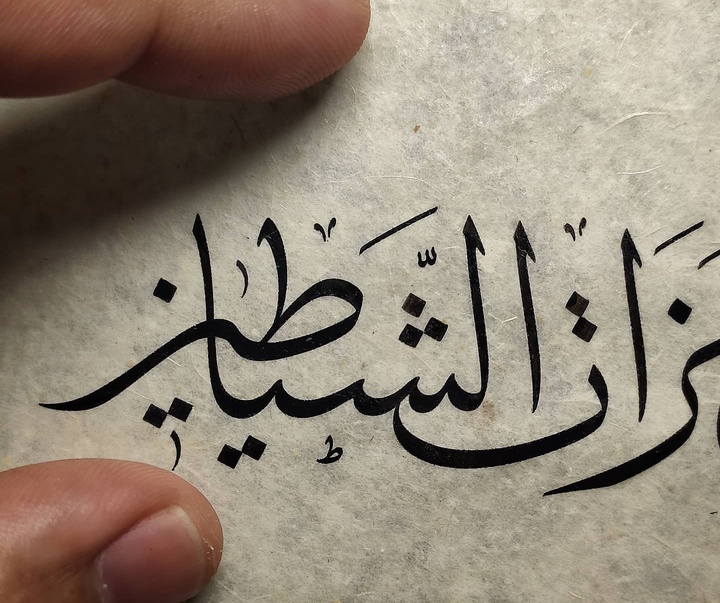 زَاتِ الشَّيَاطِينِ